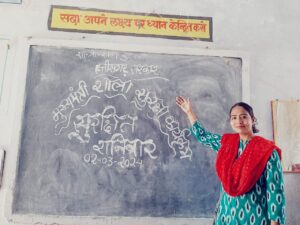 सदा अपने लक्ष्य पर ध्यान केन्द्रित करो
छत्तीसगढ़ सरकार
मुख्यमंत्री शाला सुरक्षा कार्यक्रम
सुरक्षित
शनिवार
02-03-2024